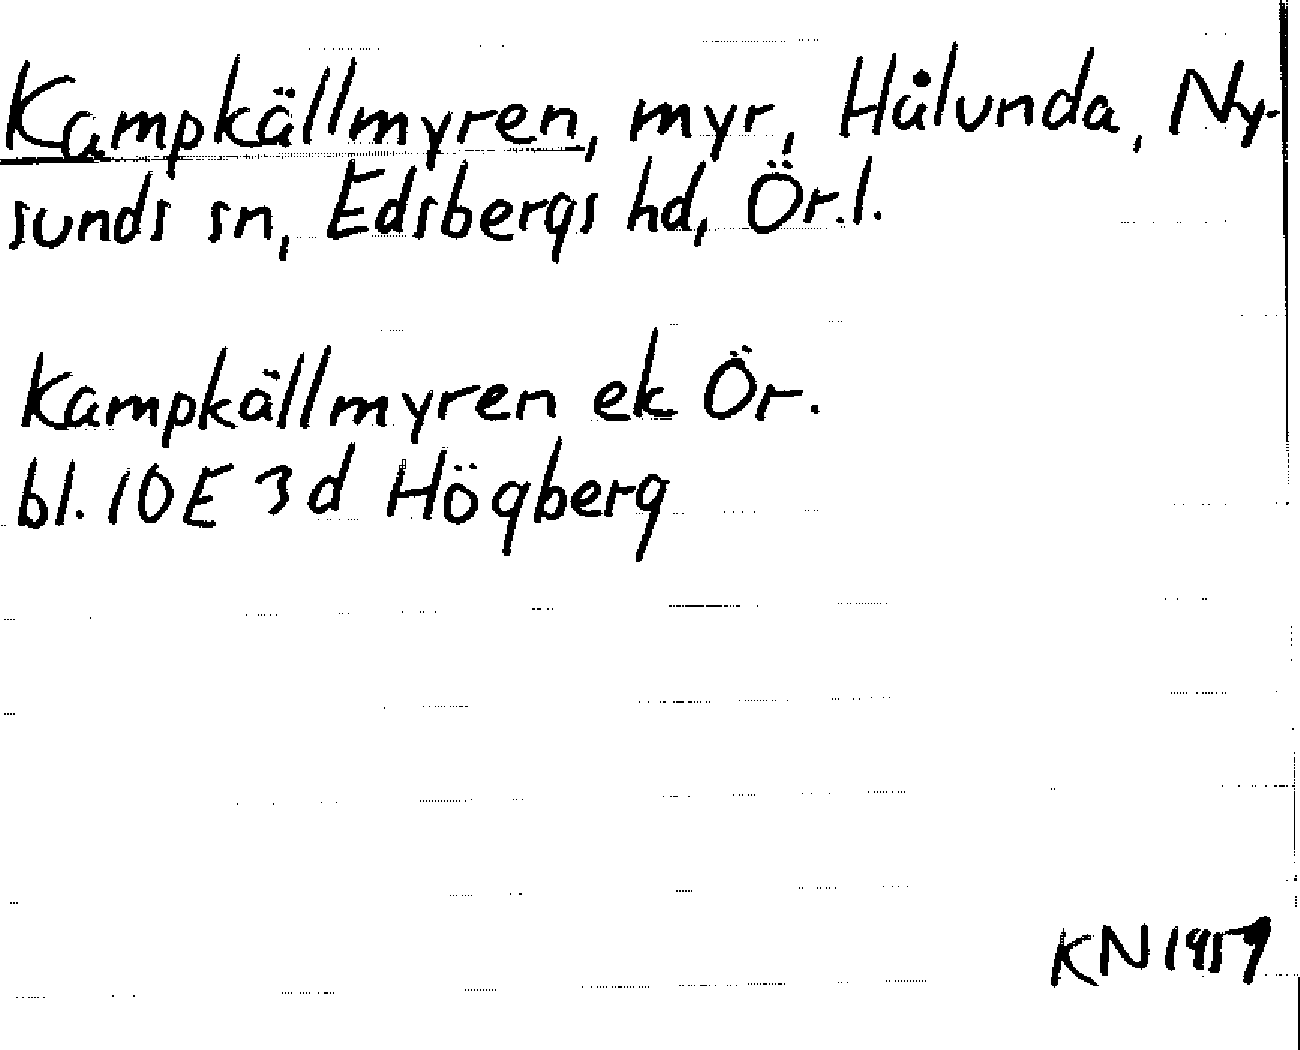 Kampkällmyren, myr, Hålunda, Ny-
sunds sn, Edsbergs hd, Ör.l.
Kampkällmyren ek Ör.
bl. 10E 3d Högberg
KN 1957